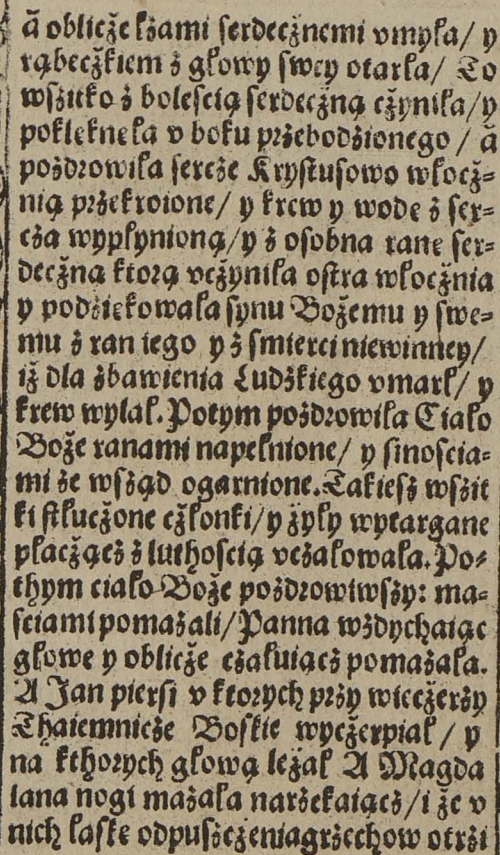 ã obliczże łzami serdecżnemi vmyła/ y
rąbecżkiem z głowy swey otarła/ To
wszitko z bolescią serdecżną cżyniła/y
poklęknęła v boku przebodzionego / ã
pozdrowiła sercże Krystusowo włocż⸗
nią przekroione/ y krew y wodę z ser⸗
cża wypłynioną/y z osobna ranę ser⸗
decżną ktorą vcżyniła ostra włocżnia
y podziękowała synu Bożemu y swe⸗
mu z ran iego y z smierci niewinney/
iż dla zbawienia Ludzkiego vmarł/ y
krew wylał. Potym pozdrowiła Ciało
Boże ranami napełnione/ y sinoscia⸗
mi ze wsząd ogarnione. Takiesz wszit
ki stłucżone cżłonki/y żyły wytargane
płacżącz z luthoscią vczałowała. Po⸗
thym ciało Boże pozdrowiwszy: ma⸗
sciami pomazali/Panna wzdychaiąc
głowę y oblicże czałuiącz pomazała.
A Jan piersi v ktorych przy wieczerzy
Thaiemnicże Boskie wycżerpiał / y
na kthorych głową leżał A Magda
lana nogi mazała narzekaiącz/i że v
nich łaskę odpuszczenia grzechow otrzi